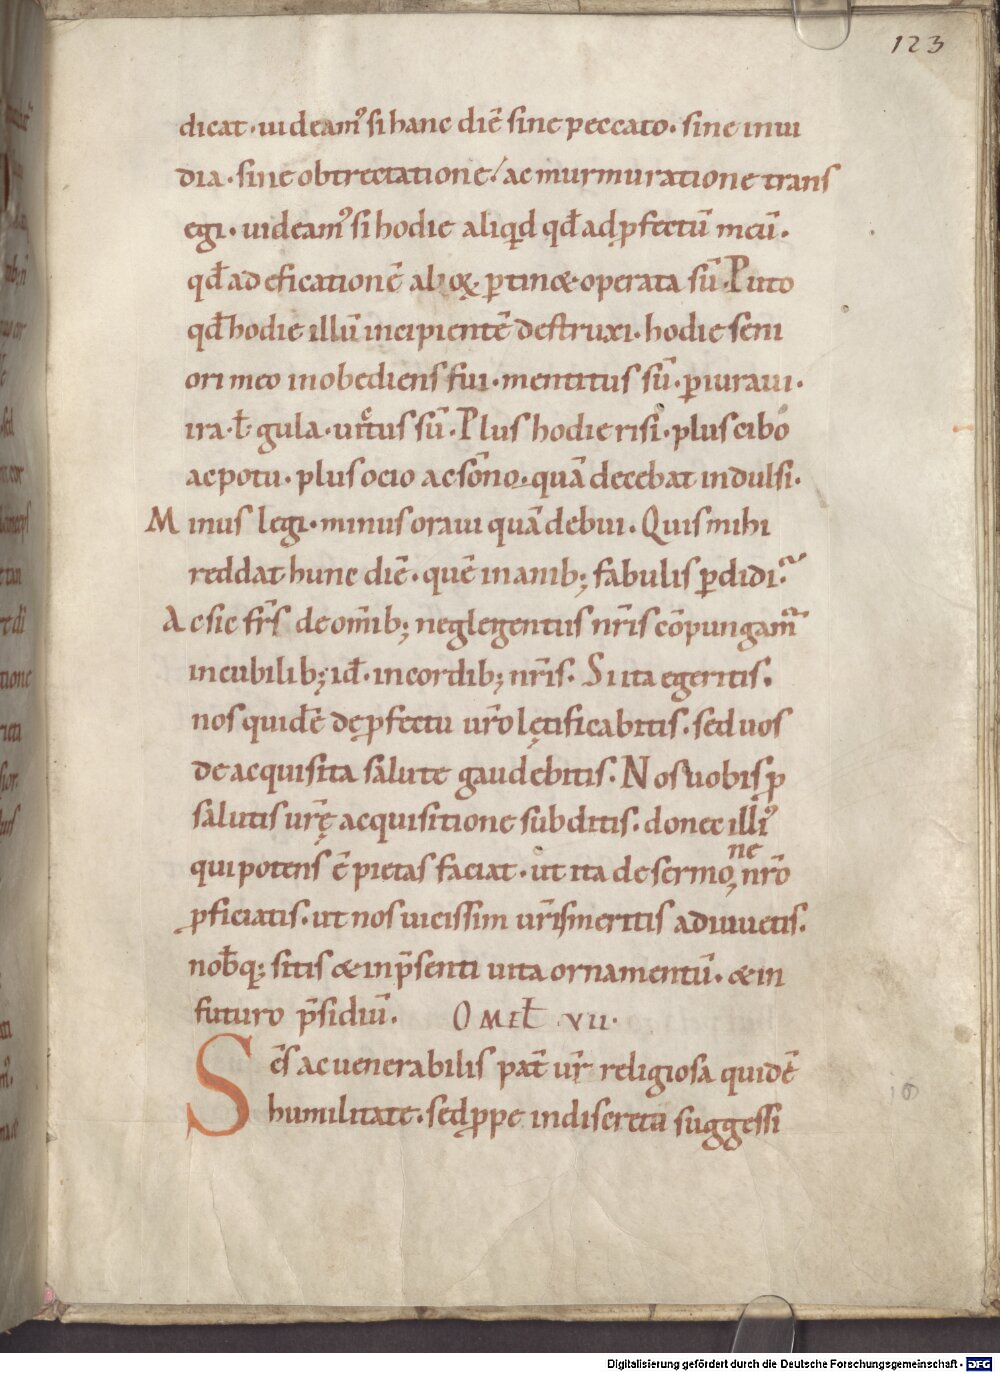 123
dicat · uideam᷒ si hanc diē sine peccato · sine inui
dia · sine obtrectatione / ac murmuratione trans
egi · uideam᷒ si hodie aliqđ qđ ad ꝓfectū meū .
qđ ad eficationē alioꝝ ꝑtin& operata sū · Puto
qđ hodie illū incipientē destruxi · hodie seni
ori meo inobediens fui · mentitus sū · ꝑiuraui ·
ira · ł · gula · uictus sū · Plus hodie risi · plus cibo
ac potu · plus ocio ac sōno · quā decebat indulsi ·
Minus legi · minus oraui quā debui . Quis mihi
reddat hunc diē · quē inanib; fabulis ꝑdidi ?
Ac sic fr̄s de om̄ib; neglegentiis nr̄is cōpungam᷒
in cubilib; id̄ · in cordib; nr̄is . Si ita egeritis .
nos quidē de ꝓfectu ur̄o lętificabitis · sed uos
de acquisita salute gaudebitis . Nos uobis ꝓ
salutis ur̄ę acquisitione subditis · donec illi᷒
qui potens ē pietas faciat · ut ita de sermone nr̄o
ꝓficiatis · ut nos uicissim ur̄is meritis adiuuetis ·
nob̄q; sitis & in p̄senti uita ornamentū · & in
futuro p̄sidiū . OMEŁ VII ·
Sc̄s ac uenerabilis pat̄ ur̄ religiosa quidē
humilitate · sed ꝓpe indiscreta suggessi
Digitalisierung gefördert durch die Deutsche Forschungsgemeinschaft - DFG